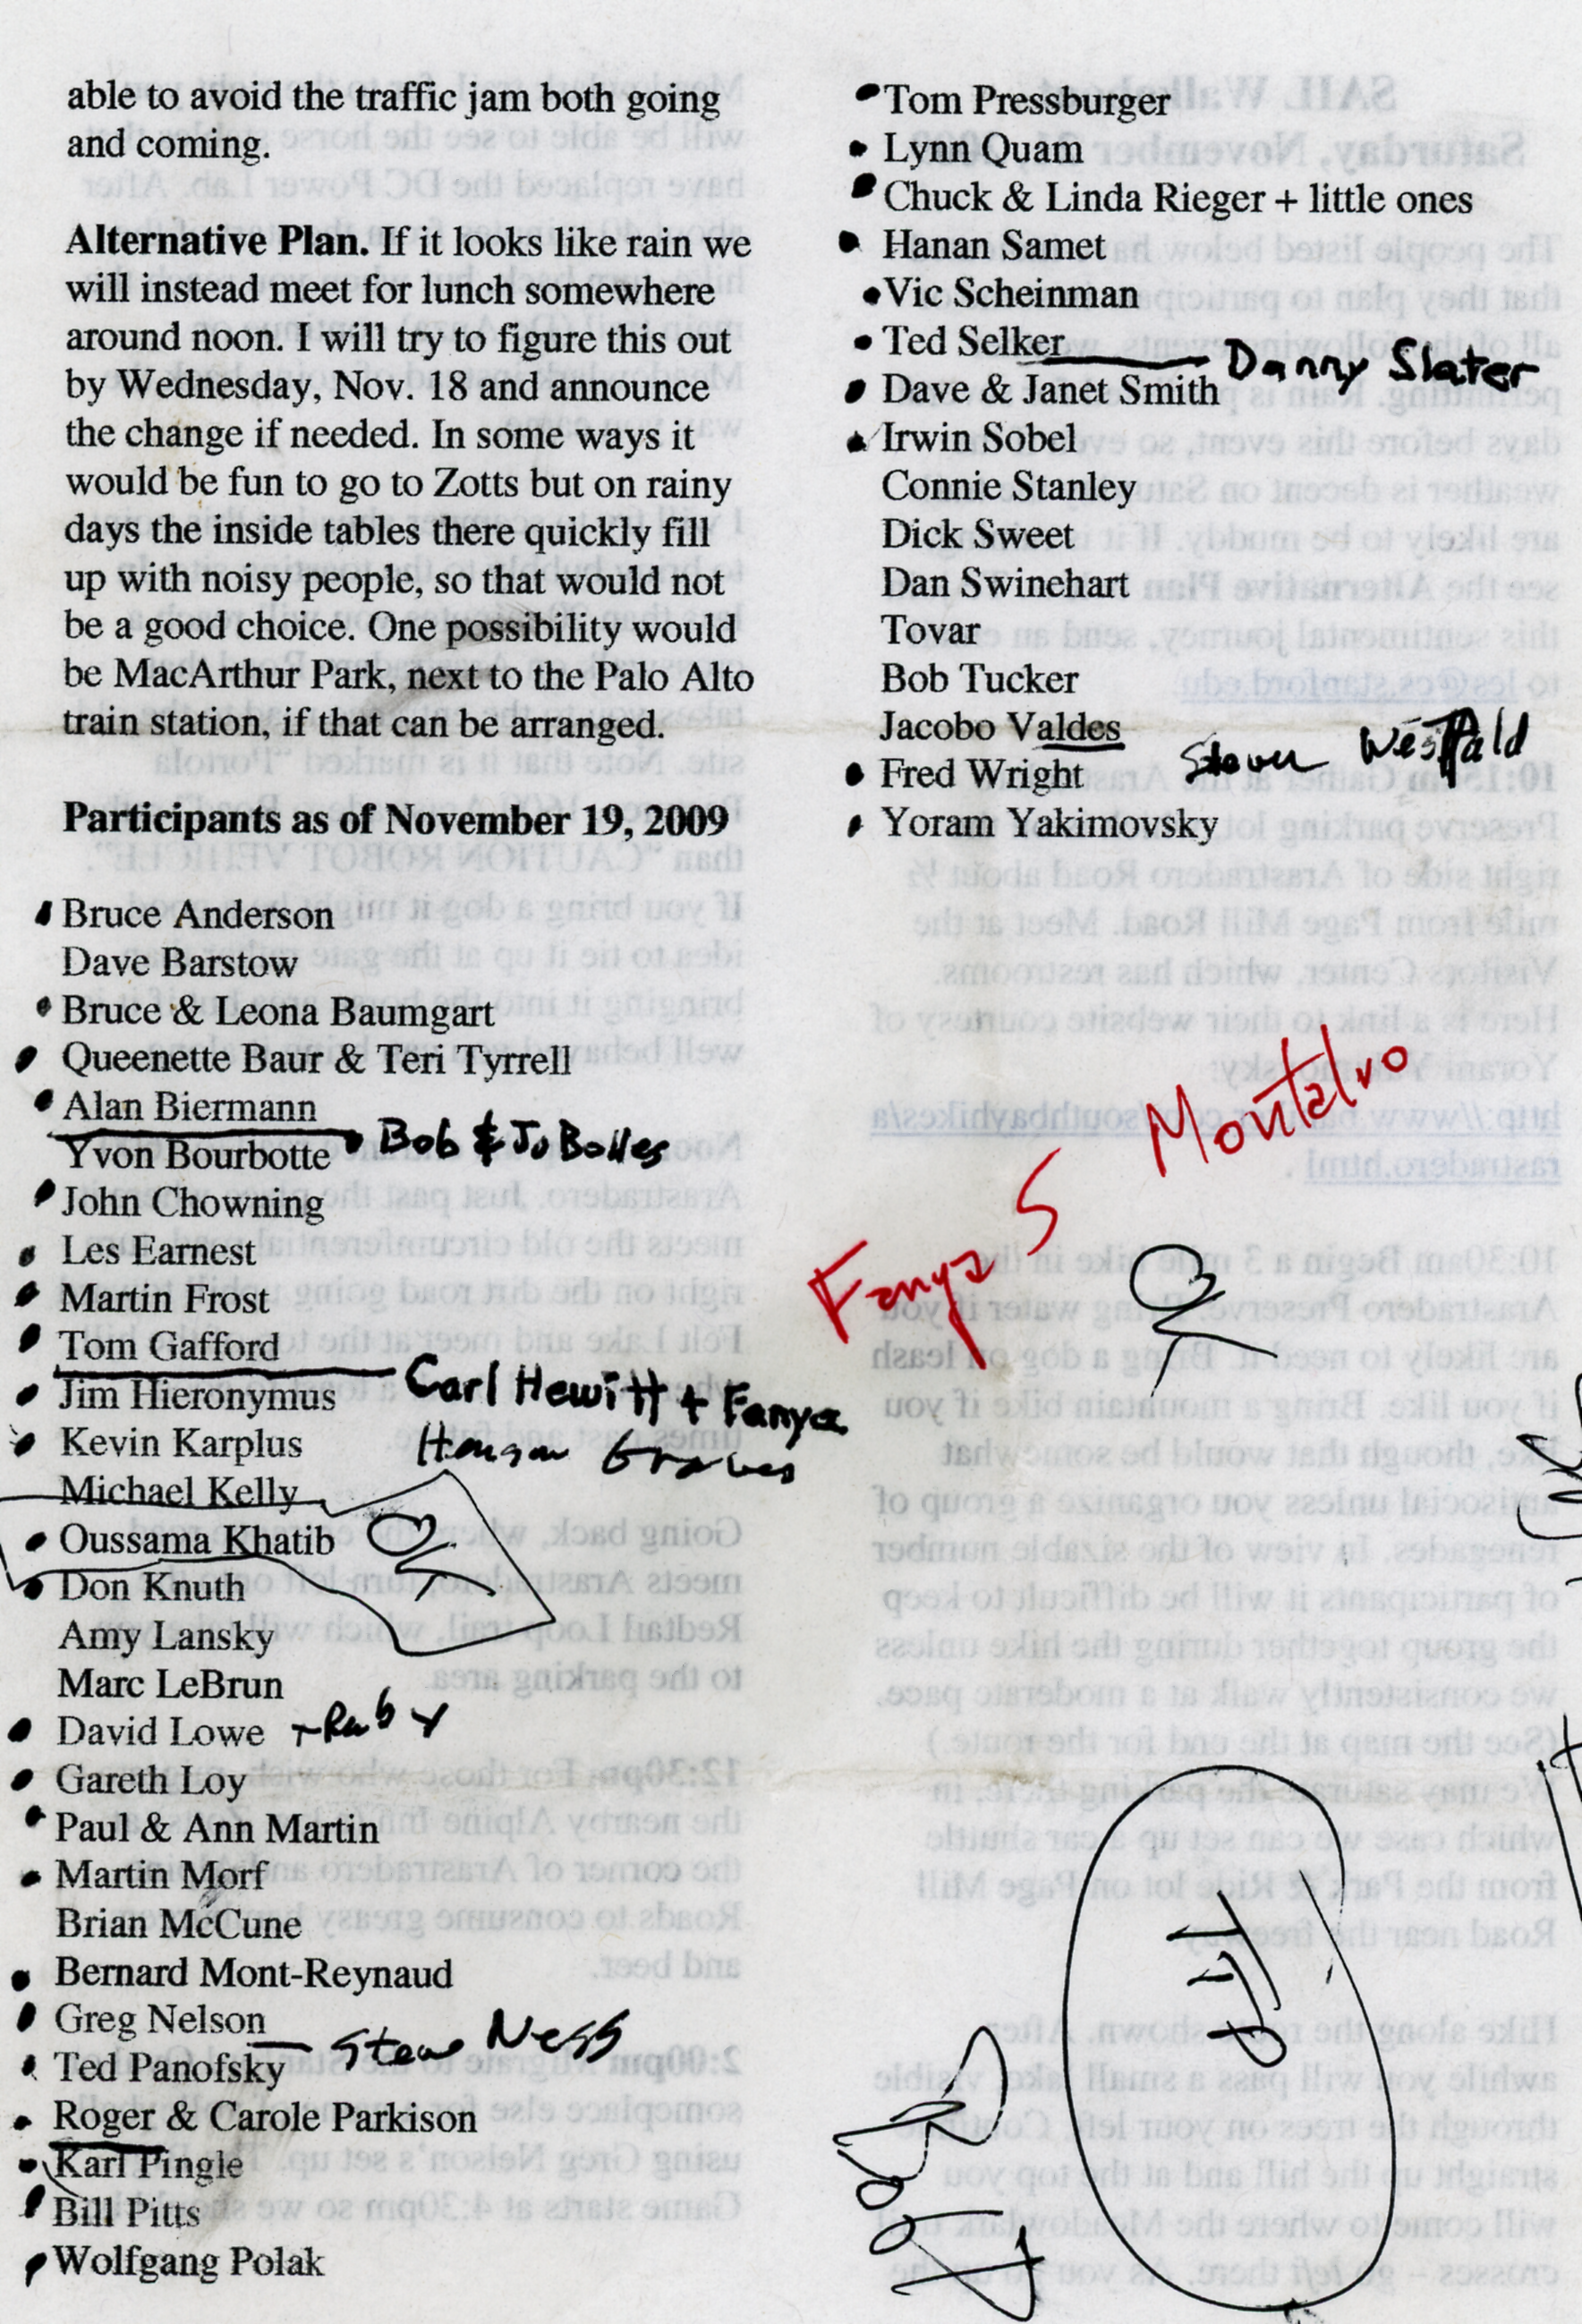 able to avoid the traffic jam both going
and coming.
Alternative Plan. If it looks like rain we
will instead meet for lunch somewhere
around noon. I will try to figure this out
by Wednesday, Nov. 18 and announce
the change if needed. In some ways it
would be fun to go to Zotts but on rainy
days the inside tables there quickly fill
up with noisy people, so that would not
be a good choice. One possibility would
be MacArthur Park, next to the Palo Alto
train station, if that can be arranged.
Participants as of November 19, 2009
Bruce Anderson
Dave Barstow
Bruce & Leona Baumgart
Queenette Baur & Teri Tyrrell
Alan Biermann
Bob & Jo Bolles
Yvon Bourbotte
John Chowning
Les Earnest
Martin Frost
Tom Gafford
Carl Hewitt + Fanya
Jim Hieronymus
Kevin Karplus
Michael Kelly
Oussama Khatib
Don Knuth
Amy Lansky
Marc LeBrun
David Lowe
Gareth Loy
Paul & Ann Martin
Martin Morf
Brian McCune
Bernard Mont-Reynaud
Greg Nelson
Steve Ness
Ted Panofsky
Roger & Carole Parkison
Karl Pingle
Bill Pitts
Wolfgang Polak
Tom Pressburger
Lynn Quam
Chuck & Linda Rieger + little ones
Hanan Samet
Vic Scheinman
Ted Selker
Danny Slater
Dave & Janet Smith
Irwin Sobel
Connie Stanley
Dick Sweet
Dan Swinehart
Tovar
Bob Tucker
Jacobo Valdes
Fred Wright
Yoram Yakimovsky
Fanya S Montalvo